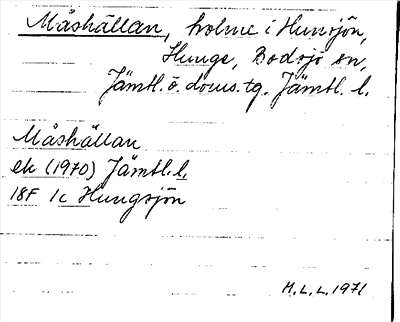 Måshällan, holme i Hunsjön,
Hunge, Bodsjö sn,
Jämtl. ö. doms. tg. Jämtl. l.
Måshällan
ek (1970) Jämtl. l.
18F 1c Hungsjön
M.L.L. 1971